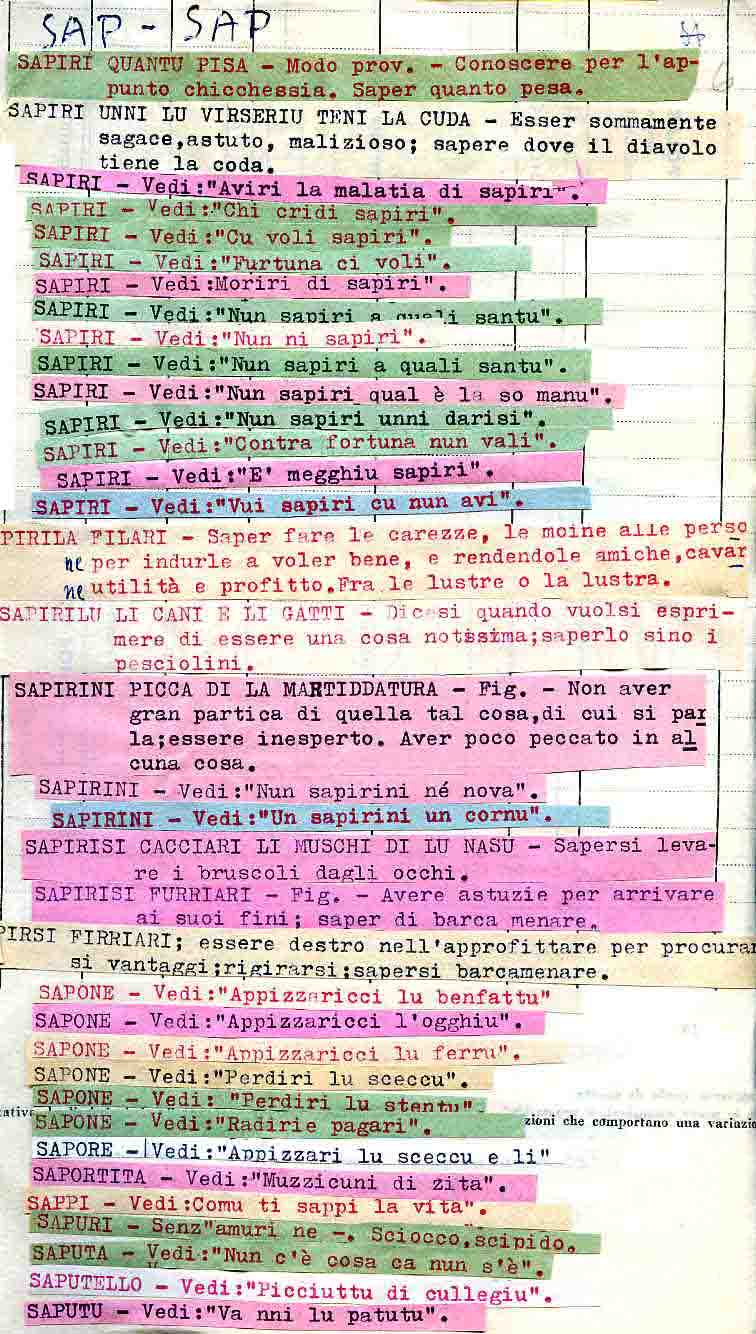 SAP - SAP
SAPIRI QUANTU PISA - Modo prov. - Conoscere per l'ap-
punto chicchessia. Saper quanto pesa.
SAPIRI UNNI LU VIRSERIU TENI LA CUDA - Esser sommamente
sagace,astuto, malizioso; sapere dove il diavolo
tiene la coda.
SAPIRI - Vedi:"Aviri la malatia di sapiri".
SAPIRI - Vedi:"Chi cridi sapiri".
SAPIRI - Vedi:"Cu voli sapiri".
SAPIRI - Vedi:"Furtuna ci voli".
SAPIRI - Vedi:Moriri di sapiri".
SAPIRI - Vedi:"Nun sapiri a quali santu".
SAPIRI - Vedi:"Nun ni sapiri".
SAPIRI - Vedi:"Nun sapiri a quali santu".
SAPIRI - Vedi:"Nun sapiri qual è la so manu".
SAPIRI - Vedi:"Nun sapiri unni darisi".
SAPIRI - Vedi:"Contra fortuna nun vali".
SAPIRI - Vedi:"E' megghiu sapiri".
SAPIRI - Vedi:"Vui sapiri cu nun avi".
PIRILA FILARI - Saper fare le carezze, le moine alle perso
ne per indurle a voler bene, e rendendole amiche,cavar
ne utilità e profitto.Fra le lustre o la lustra.
SAPIRILU LI CANI E LI GATTI - Dicesi quando vuolsi espri-
mere di essere una cosa notissima;saperlo sino i
pesciolini.
SAPIRINI PICCA DI LA MARTIDDATURA - Fig. - Non aver
gran partica di quella tal cosa,di cui si par
la;essere inesperto. Aver poco peccato in al
cuna cosa.
SAPIRINI - Vedi:"Nun sapirini né nova".
SAPIRINI - Vedi:"Un sapirini un cornu".
SAPIRISI CACCIARI LI MUSCHI DI LU NASU - Sapersi leva-
re i bruscoli dagli occhi.
SAPIRISI FURRIARI - Fig. - Avere astuzie per arrivare
ai suoi fini; saper di barca menare.
PIRSI FIRRIARI; essere destro nell'approfittare per procurar
si vantaggi;rigirarsi;sapersi barcamenare.
SAPONE - Vedi:"Appizzaricci lu benfattu"
SAPONE - Vedi:"Appizzaricci l'ogghiu".
SAPONE - Vedi:"Appizzaricci lu ferru".
SAPONE - Vedi:"Perdiri lu sceccu".
SAPONE - Vedi: "Perdiri lu stentu"
SAPONE - Vedi:"Radirie pagari".
zioni che comportano una variazio
SAPORE - Vedi:"Appizzari lu sceccu e li"
SAPORTITA - Vedi:"Muzzicuni di zita".
SAPPI - Vedi:Comu ti sappi la vita".
SAPURI - Senz"amuri ne -. Sciocco,scipido.
SAPUTA - Vedi:"Nun c'è cosa ca nun s'è".
SAPUTELLO - Vedi:"Picciuttu di cullegiu".
SAPUTU - Vedi:"Va nni lu patutu".